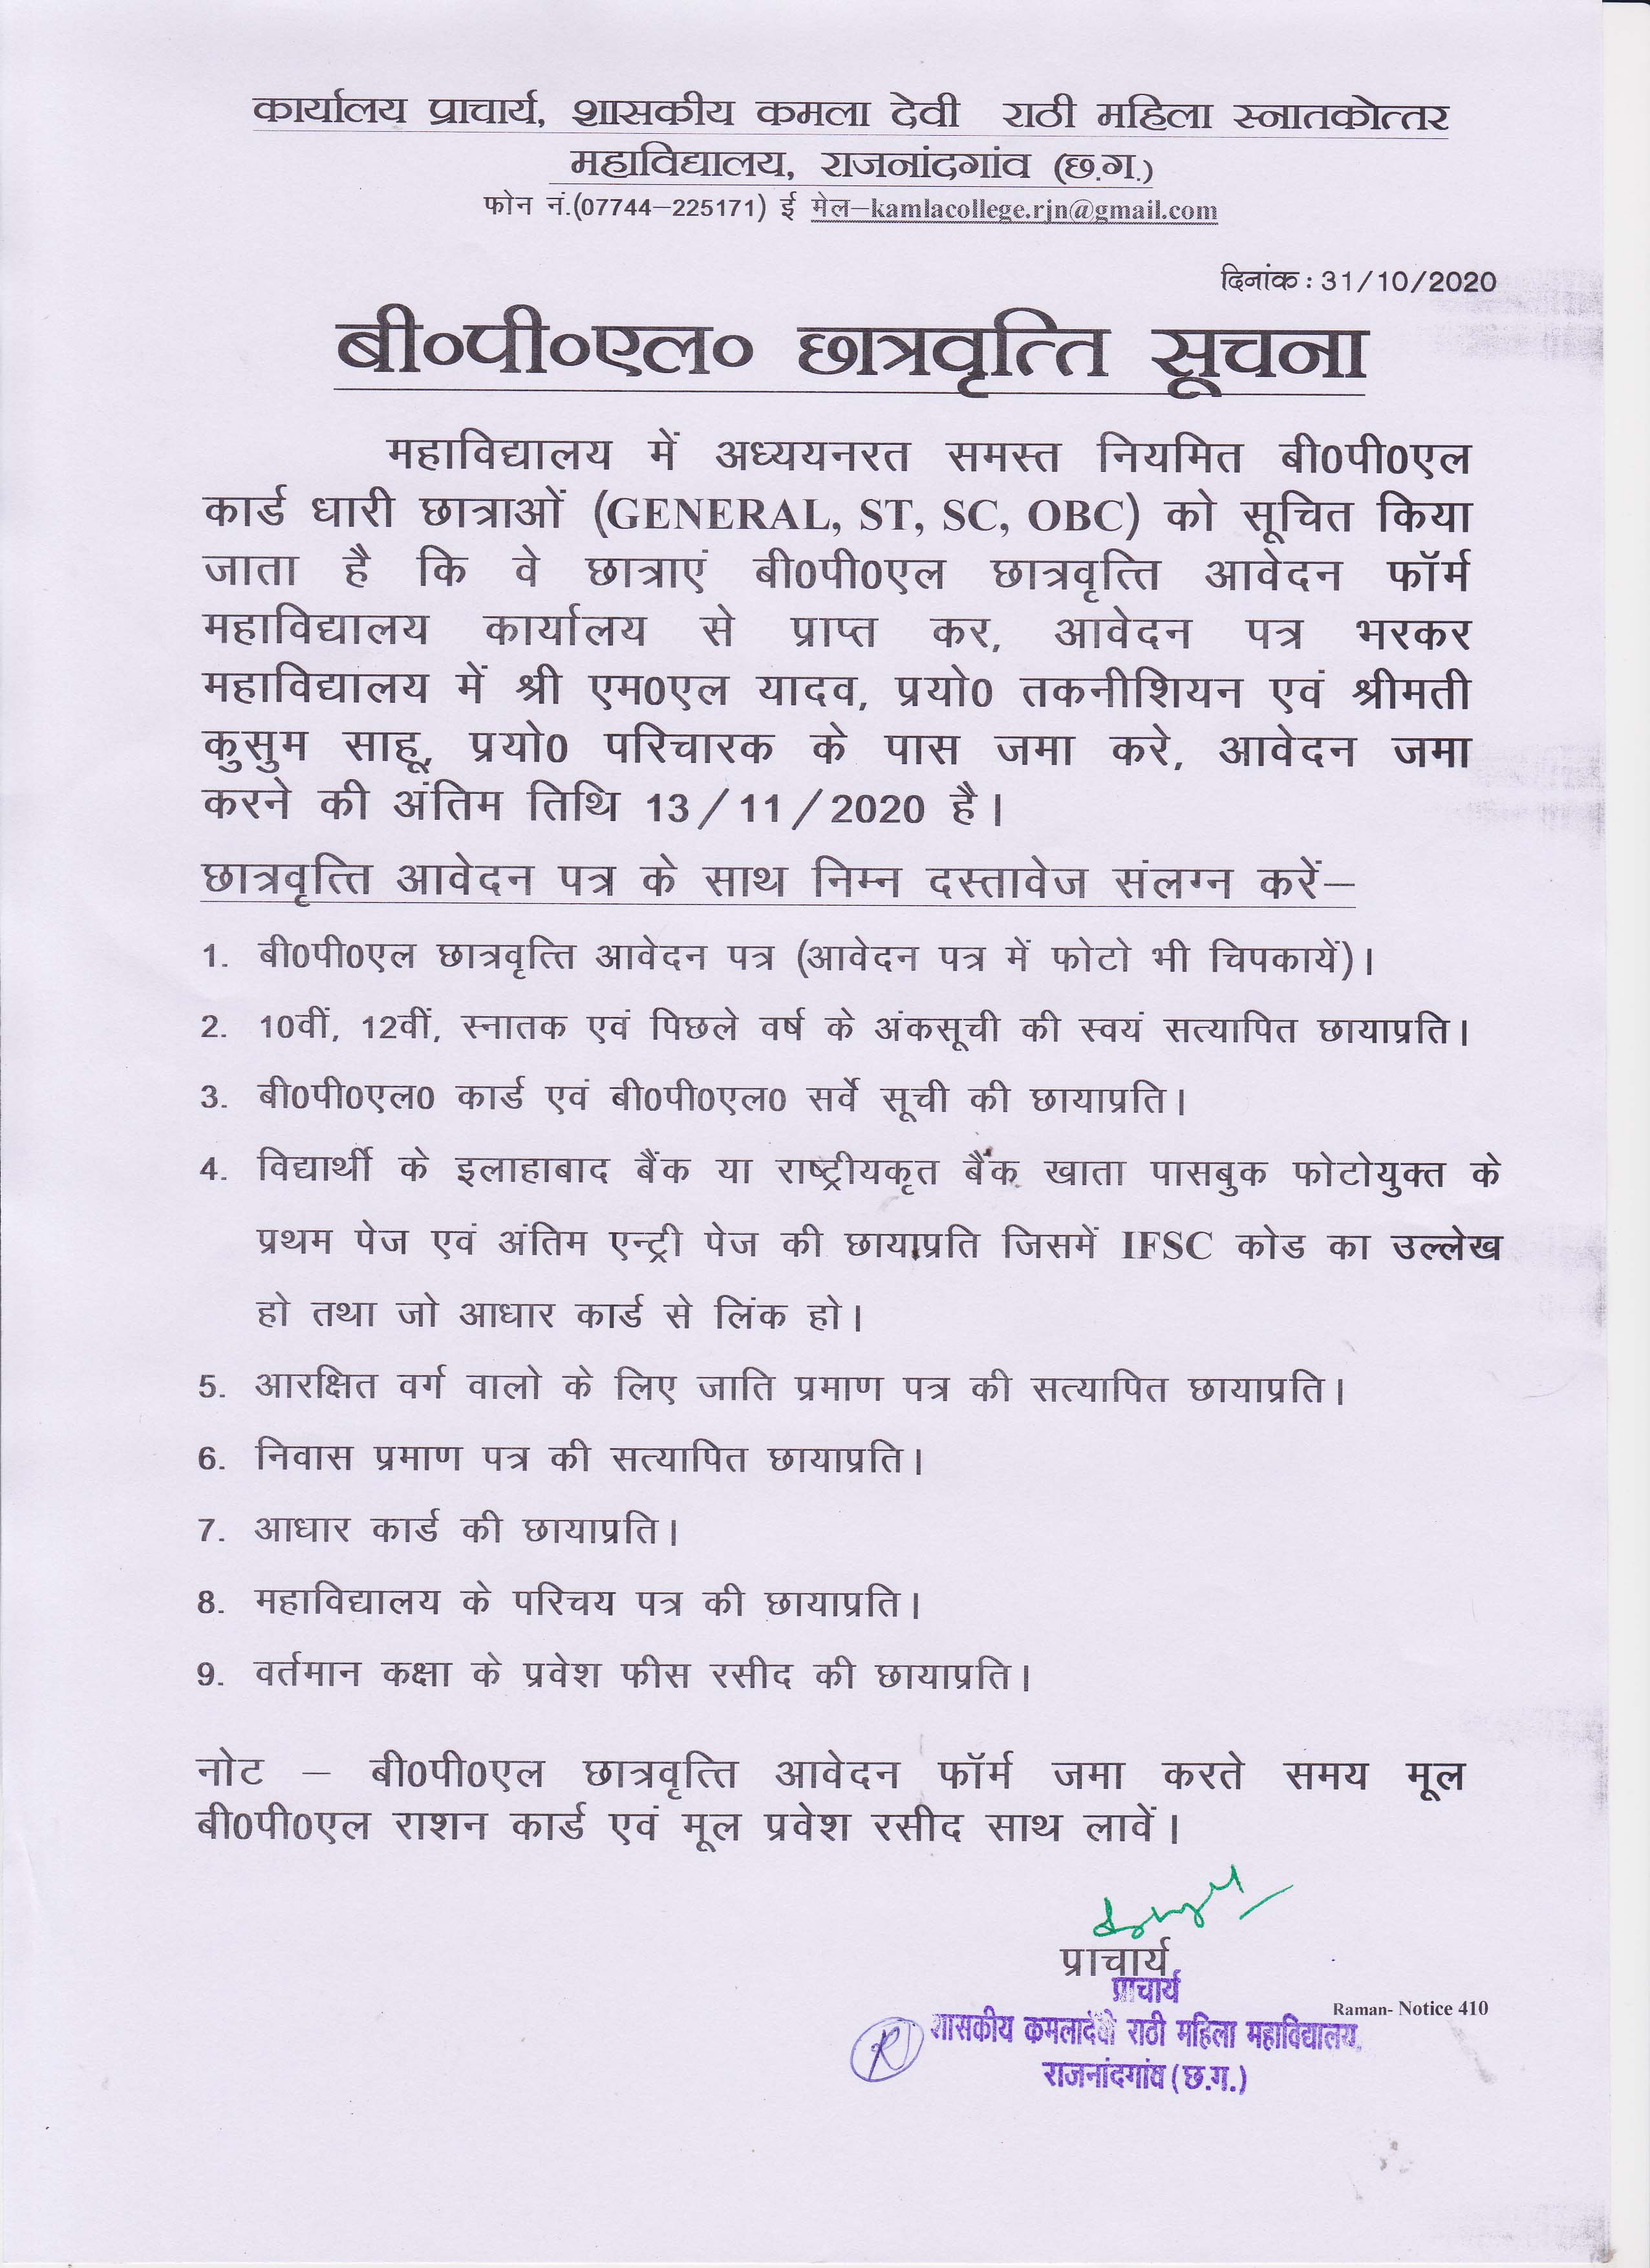 कार्यालय प्राचार्य, शासकीय कमला देवी राठी महिला स्नातकोत्तर
महाविद्यालय, राजनांदगांव (छ.ग.)
फोन नं.(07744–225171) ई मेल–kamlacollege.rjn@gmail.com
दिनांक : 31/10/2020
बी०पी०एल० छात्रवृत्ति सूचना
महाविद्यालय में अध्ययनरत समस्त नियमित बी0पी0एल
कार्ड धारी छात्राओं (GENERAL, ST, SC, OBC) को सूचित किया
जाता है कि वे छात्राएं बी0पी0एल छात्रवृत्ति आवेदन फॉर्म
महाविद्यालय कार्यालय से प्राप्त कर, आवेदन पत्र भरकर
महाविद्यालय में श्री एम0एल यादव, प्रयो0 तकनीशियन एवं श्रीमती
कुसुम साहू, प्रयो0 परिचारक के पास जमा करे, आवेदन जमा
करने की अंतिम तिथि 13/11/2020 है।
छात्रवृत्ति आवेदन पत्र के साथ निम्न दस्तावेज संलग्न करें–
1. बी0पी0एल छात्रवृत्ति आवेदन पत्र (आवेदन पत्र में फोटो भी चिपकायें)।
2. 10वीं, 12वीं, स्नातक एवं पिछले वर्ष के अंकसूची की स्वयं सत्यापित छायाप्रति।
3. बी0पी0एल0 कार्ड एवं बी0पी0एल0 सर्वे सूची की छायाप्रति।
4. विद्यार्थी के इलाहाबाद बैंक या राष्ट्रीयकृत बैंक खाता पासबुक फोटोयुक्त के
प्रथम पेज एवं अंतिम एन्ट्री पेज की छायाप्रति जिसमें IFSC कोड का उल्लेख
हो तथा जो आधार कार्ड से लिंक हो।
5. आरक्षित वर्ग वालो के लिए जाति प्रमाण पत्र की सत्यापित छायाप्रति।
6. निवास प्रमाण पत्र की सत्यापित छायाप्रति।
7. आधार कार्ड की छायाप्रति।
8. महाविद्यालय के परिचय पत्र की छायाप्रति।
9. वर्तमान कक्षा के प्रवेश फीस रसीद की छायाप्रति।
नोट – बी0पी0एल छात्रवृत्ति आवेदन फॉर्म जमा करते समय मूल
बी0पी0एल राशन कार्ड एवं मूल प्रवेश रसीद साथ लावें।
प्राचार्य
प्राचार्य
Raman- Notice 410
शासकीय कमलादेवी राठी महिला महाविद्यालय,
राजनांदगांव (छ.ग.)